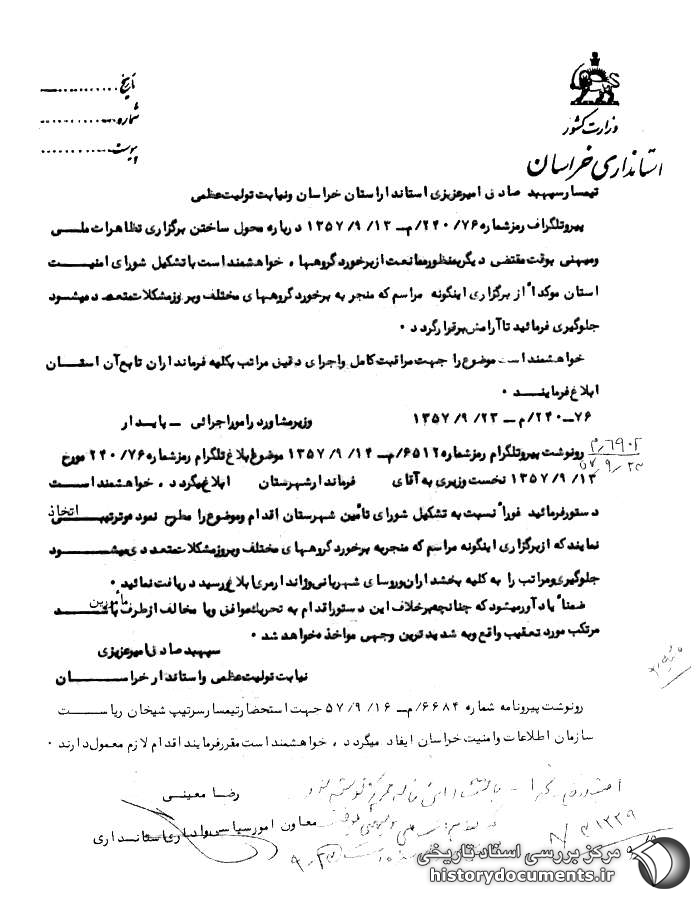 وزارت کشور
استانداری خراسان
تاریخ
شماره
پیوست
تیمسار سپهبد صادق امیرعزیزی استاندار استان خراسان و نیابت تولیت عظمی
پیرو تلگراف رمز شماره ۲۴۰/۷۶/م ــ ۱۳۵۷/۹/۱۳ درباره محول ساختن برگزاری تظاهرات ملی
و میهنی بوقت مقتضی دیگر بمنظور ممانعت از برخورد گروهها ، خواهشمند است با تشکیل شورای امنیت
استان موکداً از برگزاری اینگونه مراسم که منجر به برخورد گروههای مختلف و بروز مشکلات متعدد میشود
جلوگیری فرمائید تا آرامش برقرار گردد .
خواهشمند است موضوع را جهت مراقبت کامل و اجرای دقیق مراتب بکلیه فرمانداران تابع آن استان
ابلاغ فرمایند .
۷۶ــ۲۴۰/م ــ ۱۳۵۷/۹/۲۳ وزیر مشاور در امور اجرائی ــ پایدار
م/۶۹۰۲
۵۷/۹/۲۳
رونوشت پیرو تلگرام رمز شماره ۶۵۱۲/م ــ ۱۳۵۷/۹/۱۴ موضوع ابلاغ تلگرام رمز شماره ۲۴۰/۷۶ مورخ
۱۳۵۷/۹/۱۳ نخست وزیری به آقای فرماندار شهرستان ابلاغ میگردد ، خواهشمند است
دستور فرمائید فوراً نسبت به تشکیل شورای تأمین شهرستان اقدام و موضوع را مطرح نموده و ترتیبی اتخاذ
نمایند که از برگزاری اینگونه مراسم که منجر به برخورد گروههای مختلف و بروز مشکلات متعددی میشود
جلوگیری و مراتب را به کلیه بخشداران و روسای شهربانی و ژاندارمری ابلاغ رسید دریافت نمائید .
ضمناً یادآور میشود که چنانچه برخلاف این دستور اقدام به تحریک موافق و یا مخالف از طرف مأمورین باشد
مرتکب مورد تعقیب واقع و به شدیدترین وجهی مواخذه خواهد شد .
سپهبد صادق امیرعزیزی
نیابت تولیت عظمی و استاندار خراسان
رونوشت پیرو نامه شماره ۶۶۸۴/م ــ ۵۷/۹/۱۶ جهت استحضار تیمسار سرتیپ شیخان ریاست
سازمان اطلاعات و امنیت خراسان ایفاد میگردد ، خواهشمند است مقرر فرمایند اقدام لازم معمول دارند .
رضا معینی
معاون امور سیاسی و اداری استانداری
مرکز بررسی اسناد تاریخی
historydocuments.ir